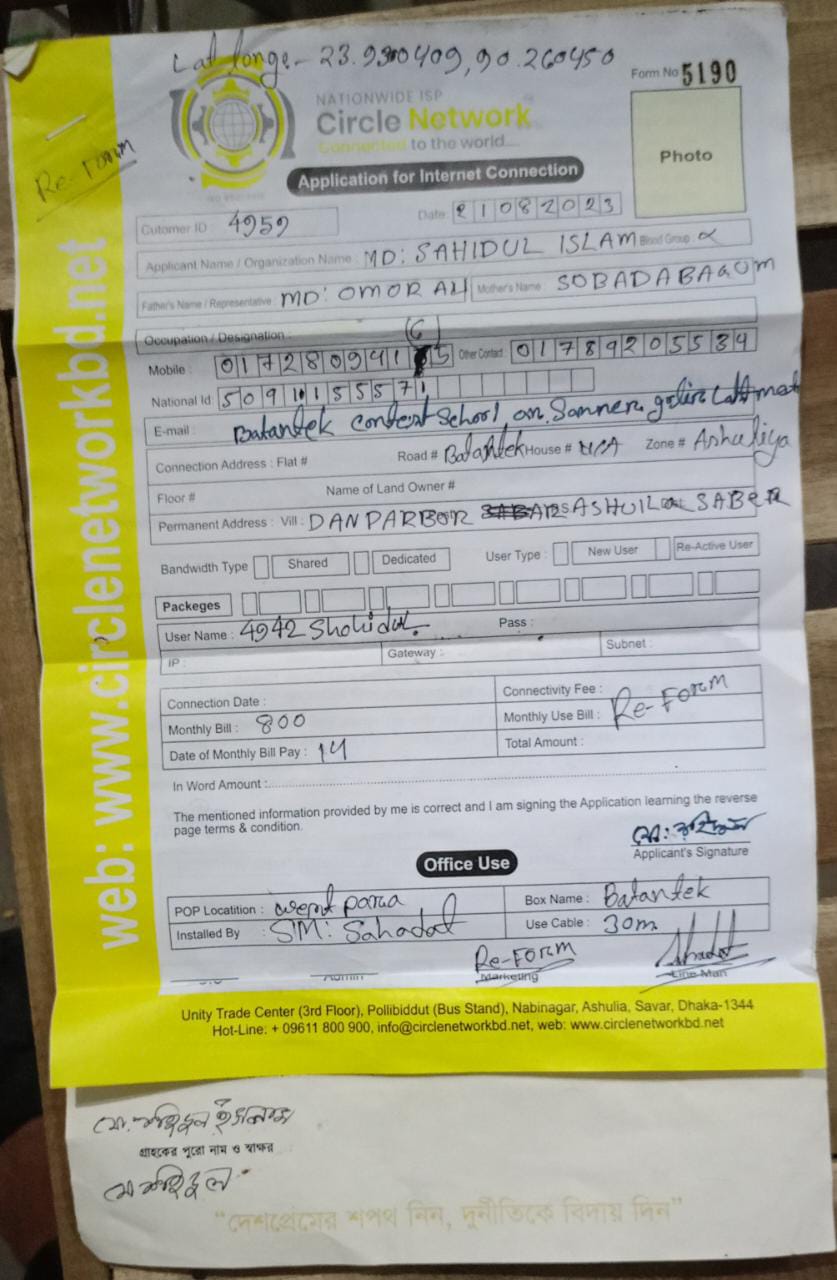 Lat longe - 23.930409, 90.260450
Form No 5190
NATIONWIDE ISP
Circle Network
Connected to the world....
Re-Form
Photo
Application for Internet Connection
Cutomer ID 4959 Date: 21082023
Applicant Name / Organization Name : MD: SAHIDUL ISLAM Blood Group :
Father's Name / Representative : MD: OMOR ALI Mother's Name : SOBADABAGUM
Occupation / Designation :
Mobile : 0172809411 Other Contact : 01789205534
National Id: 5091155571
E-mail : Batantek School
Connection Address : Flat # Road # Batantek House # N/A Zone # Ashuliya
Floor # Name of Land Owner #
Permanent Address : Vill : DANPARBOR SABER
Bandwidth Type Shared Dedicated User Type : New User Re-Active User
Packeges
User Name : 4942 Shohidul. Pass :
IP : Gateway : Subnet :
Connection Date : Connectivity Fee :
Monthly Bill : 800 Monthly Use Bill : Re-Form
Date of Monthly Bill Pay : 14 Total Amount :
In Word Amount :
The mentioned information provided by me is correct and I am signing the Application learning the reverse
page terms & condition.
Applicant's Signature
Office Use
POP Locatition : para Box Name : Batantek
Installed By : S/M: Sahadat Use Cable : 30m
Re-Form
Admin Marketing Line Man
web: www.circlenetworkbd.net
Unity Trade Center (3rd Floor), Pollibiddut (Bus Stand), Nabinagar, Ashulia, Savar, Dhaka-1344
Hot-Line: + 09611 800 900, info@circlenetworkbd.net, web: www.circlenetworkbd.net
মো. শহিদুল ইসলাম
গ্রাহকের পুরো নাম ও স্বাক্ষর
মো শহিদুল
“দেশপ্রেমের শপথ নিন, দুর্নীতিকে বিদায় দিন”